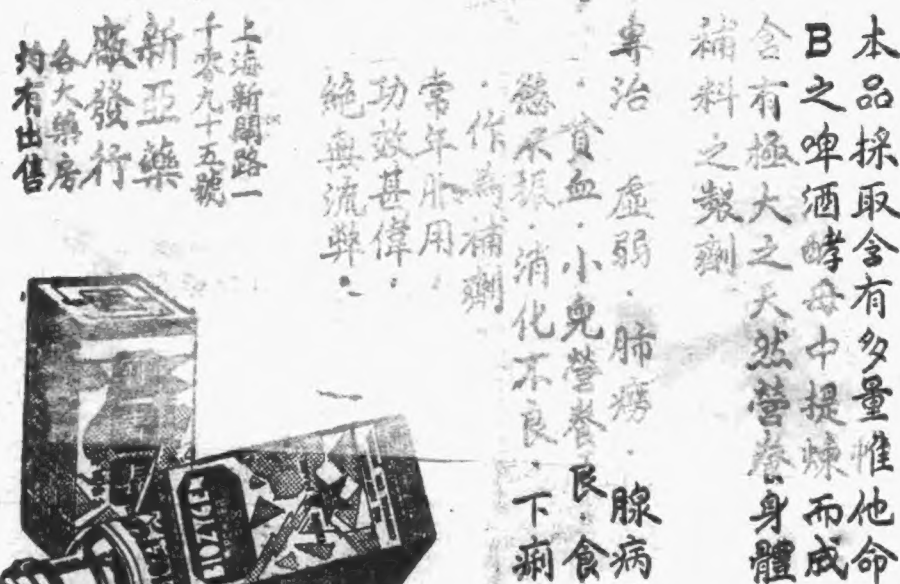 本品採取含有多量惟他命
B之啤酒酵母中提煉而成
含有極大之天然營養身體
補料之製劑
專治　虛弱．肺癆．腺病
．貧血．小兒營養良．食
慾不振．消化不良．下痢
．作為補劑
常年服用．
功效甚偉．
絕無流弊．
上海新閘路一
千零九十五號
新亞藥
廠發行
各大藥房
均有出售